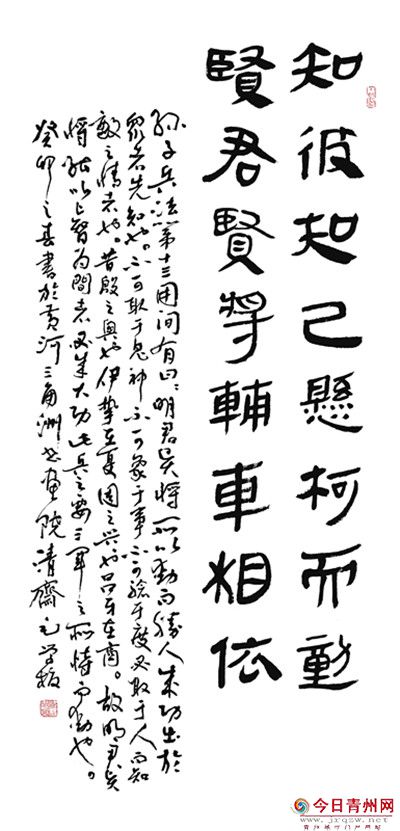 知彼知己懸柯而動
賢君賢將輔車相依
孫子兵法第十三用间有曰：明君贤将所以動而勝人成功出於
眾者先知也。不可取于鬼神不可象于事不可验于度必取于人而知
敵之情者也。昔殷之興也伊摯在夏周之兴也吕牙在商。故明君贤
將能以上智为間者必成大功此兵之要三军之所恃而動也。
癸卯之春書於黄河三角洲书画院清齋
今日青州网
www.jrqzw.net